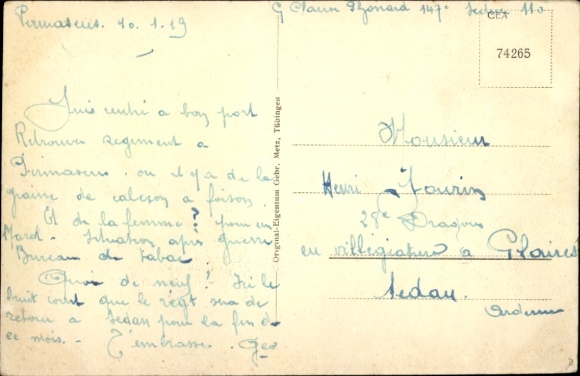 Pirmasens. 10.1.19
G Claren 147e Secteur 110
CEA
74265
Suis rentré a bon port
Retrouver Regiment a
Pirmasens. ou il y a de la
graine de caleçon a foison.
Et de la femme ? pour un
Situation après guerre
Bureau de tabac.
Quoi de neuf ! Ici le
bruit court que le régt sera de
retour a Sedan pour la fin de
ce mois. - T'embrasse. Geo
Original-Eigentum Gebr. Metz, Tübingen
Monsieur
Henri Tourin
28e Dragons
en villégiature a Glaires
Sedan.
Ardennes